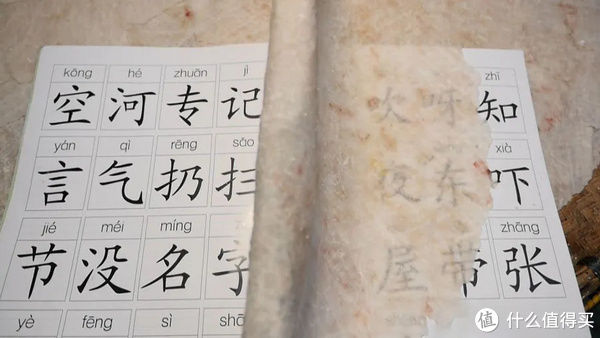 kōng hé zhuān jì zhī
空 河 专 记 火 呀 知
yán qì rēng sǎo xià
言 气 扔 扫 东 吓
jié méi míng zhāng
节 没 名 字 屋 带 张
yè fēng sì
值 什么值得买